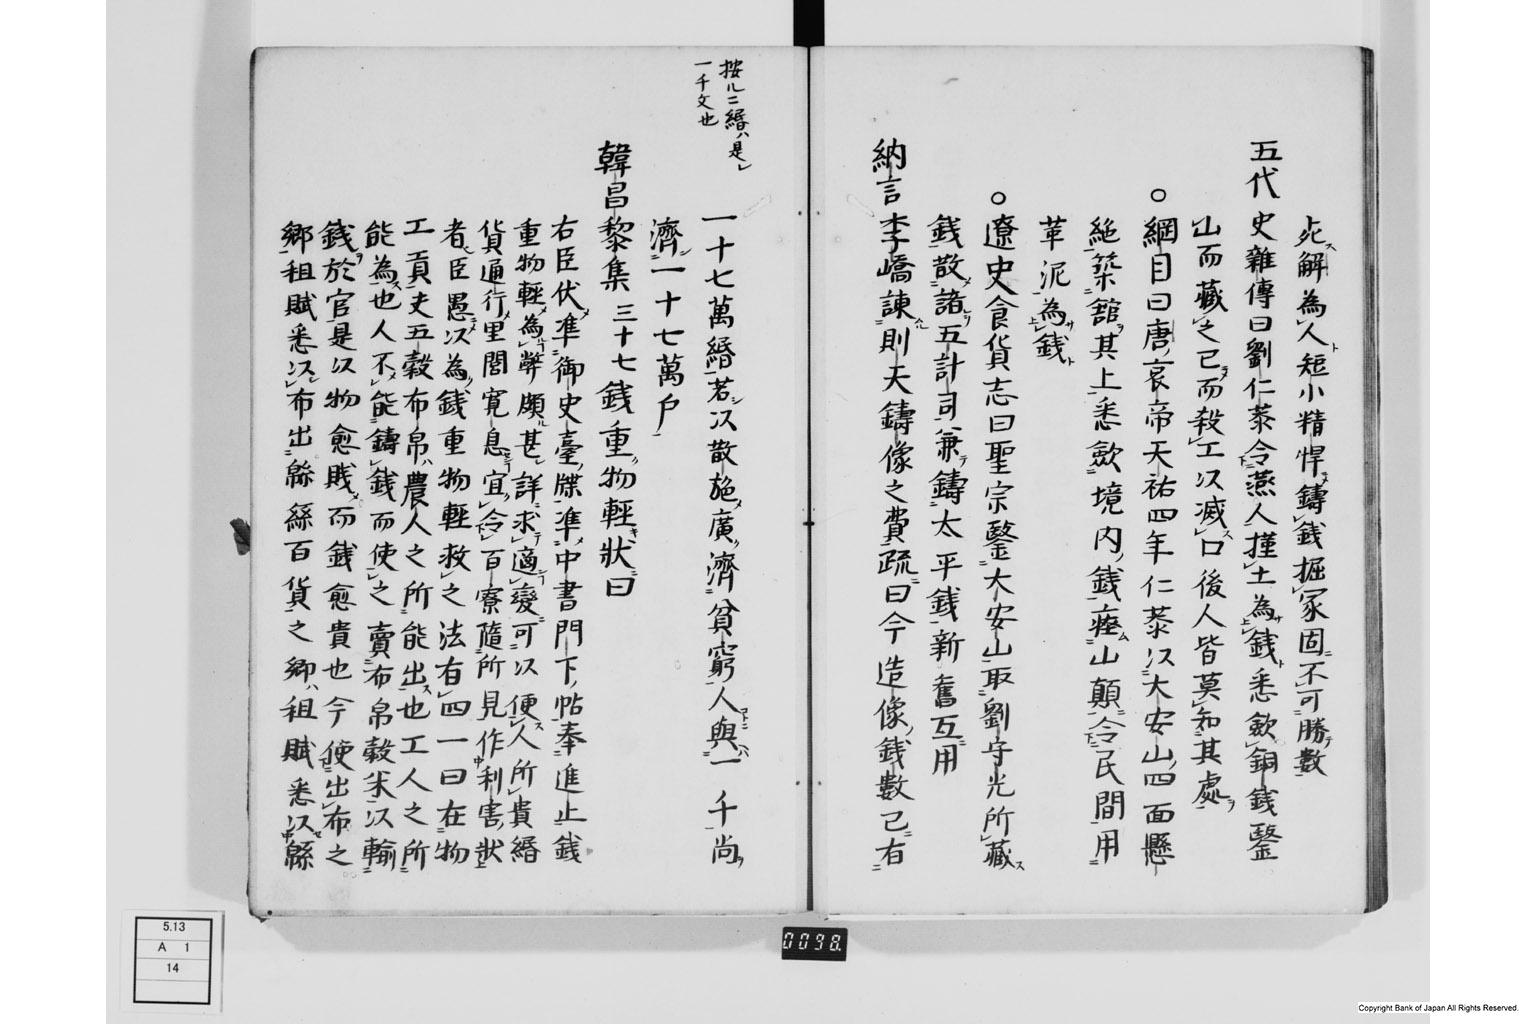 死解為人短小精悍鑄銭掘冢固不可勝數
五代史雜傳曰劉仁恭令燕人墐土為銭悉歛銅銭鑿
山而藏之已而殺工以滅口後人皆莫知其處
○綱目曰唐哀帝天祐四年仁恭以大安山四面懸
絶築舘其上悉歛境内銭瘞山顛令民間用
菫泥為銭
○遼史食貨志曰聖宗鑿大安山取劉守光所藏
銭散諸五計司兼鑄太平銭新舊互用
納言李嶠諫則天鑄像之費疏曰今造像銭數已有
一十七萬緡若以散施廣濟貧窮人與一千尚
濟一十七萬戶
按ルニ緡ハ是レ
一千文也
韓昌黎集三十七銭重物輕状曰
右臣伏准御史臺牒准中書門下帖奉進止銭
重物輕為弊頗甚詳求適變可以便人所貴緡
貨通行里閭寛息宜令百寮隨所見作利害状
者臣愚以為銭重物軽救之法有四一曰在物
工貢夫五穀布帛農人之所能出也工人之所
能為也人不能鑄銭而使之賣布帛穀米以輸
銭於官是以物愈賎而銭愈貴也今使出布之
郷租賦悉以布出緜絲百貨之郷租賦悉以緜
0098.
5.13
A 1
14
Copyright Bank of Japan All Rights Reserved.